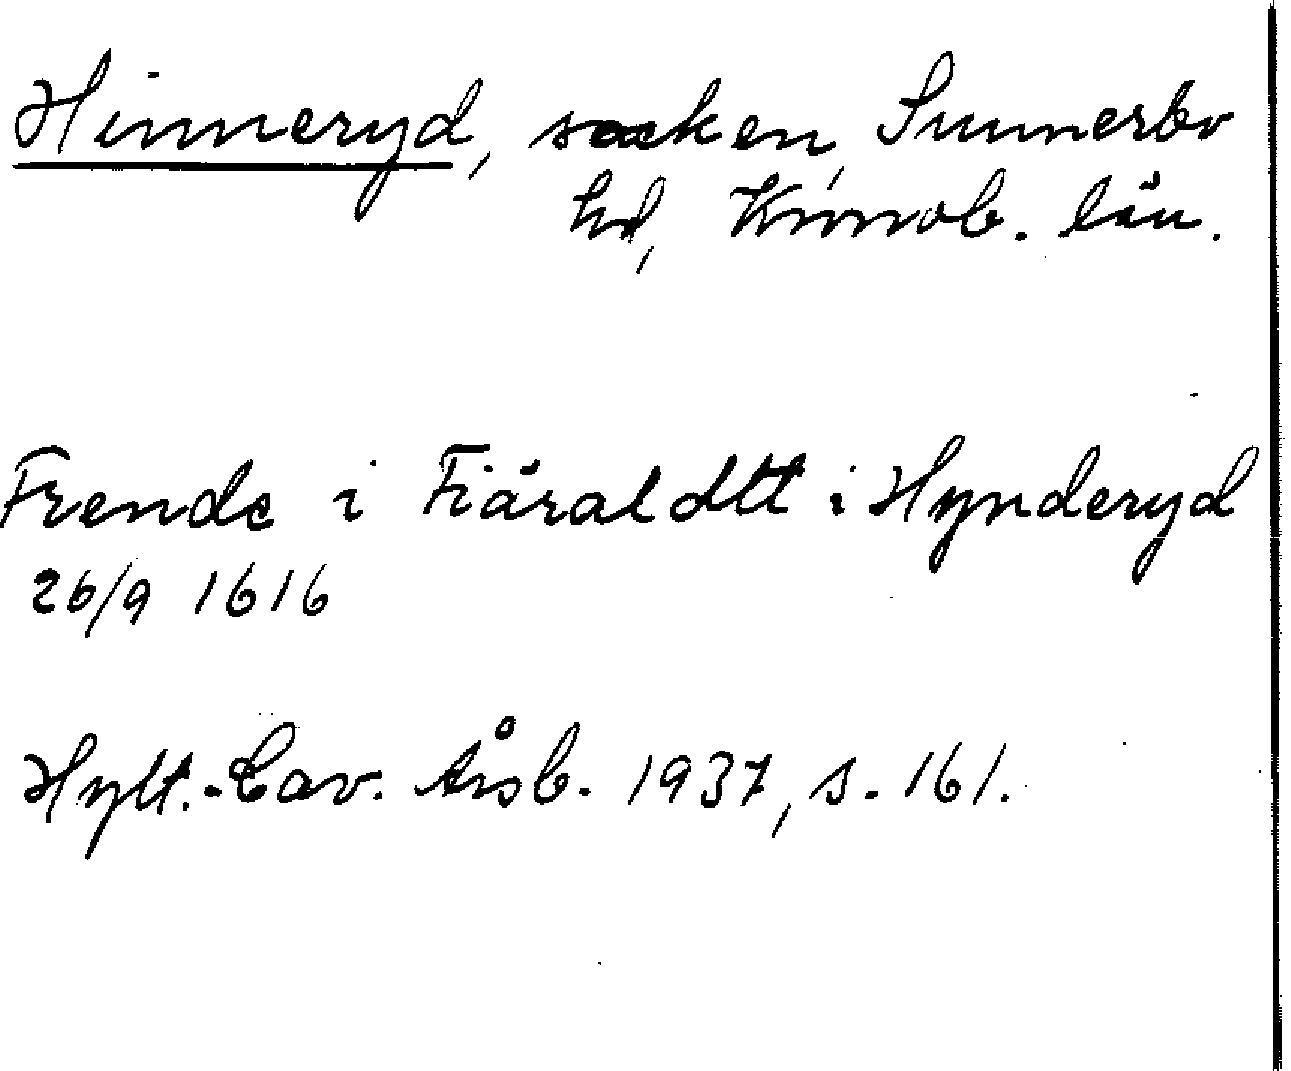 Hinneryd, socken, Sunnerbo
hd, Kronob. län.
Frende i Fiäraldtt i Hynderyd
26/9 1616
Hylt.-Cav. Årsb. 1937, s. 161.